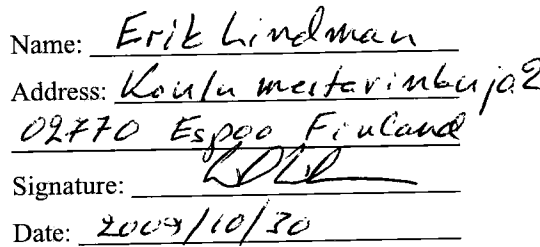 Name: Erik Lindman
Address: Koulumestarinkuja 2
02770 Espoo Finland
Signature:
Date: 2009/10/30